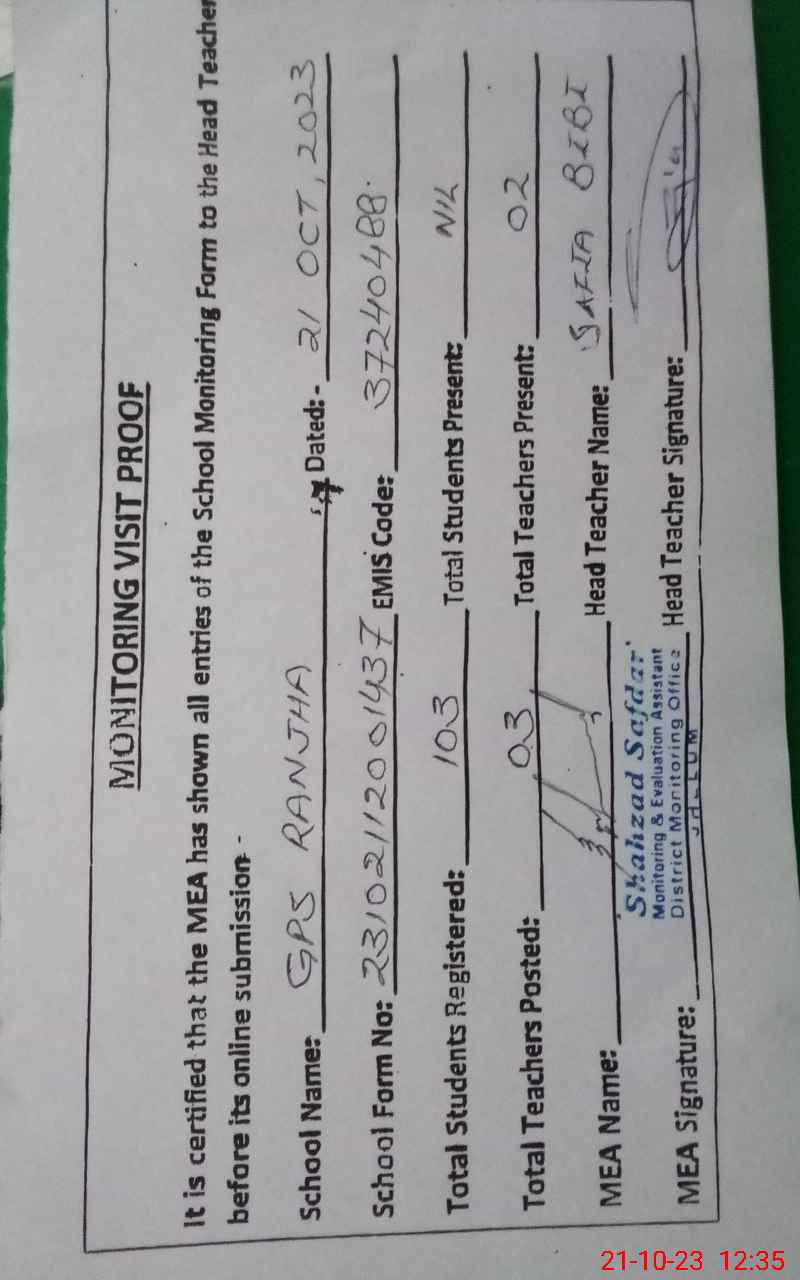 MONITORING VISIT PROOF
It is certified that the MEA has shown all entries of the School Monitoring Form to the Head Teacher
before its online submission -
School Name: GPS RANJHA Dated: - 21 OCT, 2023
School Form No: 23102112001437 EMIS Code: 37240488.
Total Students Registered: 103 Total Students Present: NIL
Total Teachers Posted: 03 Total Teachers Present: 02
MEA Name: Head Teacher Name: SAFIA BIBI
Shahzad Safdar
Monitoring & Evaluation Assistant
District Monitoring Office
MEA Signature: Head Teacher Signature:
21-10-23 12:35